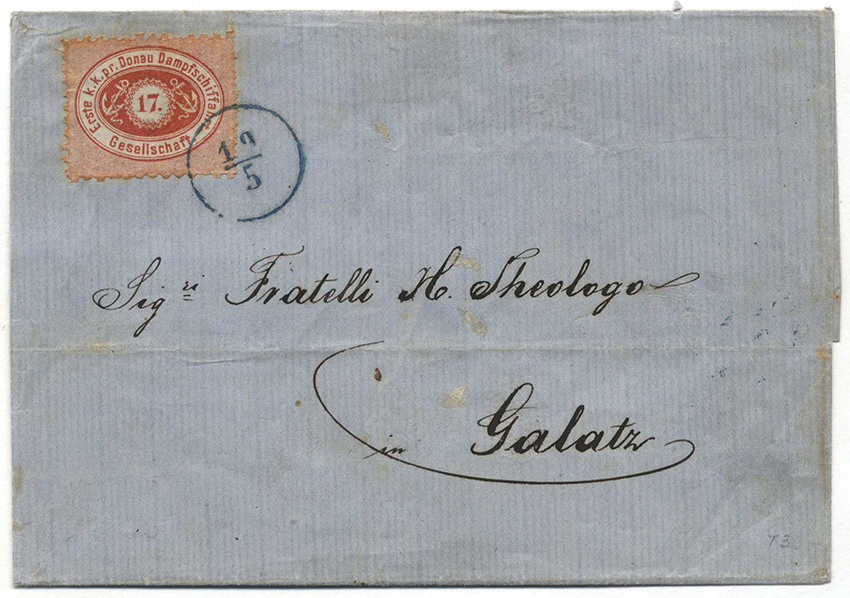 Erste k. k. pr. Donau Dampfschiffahrt
17.
Gesellschaft
5
Sig.ri Fratelli H. Theologo
in Galatz